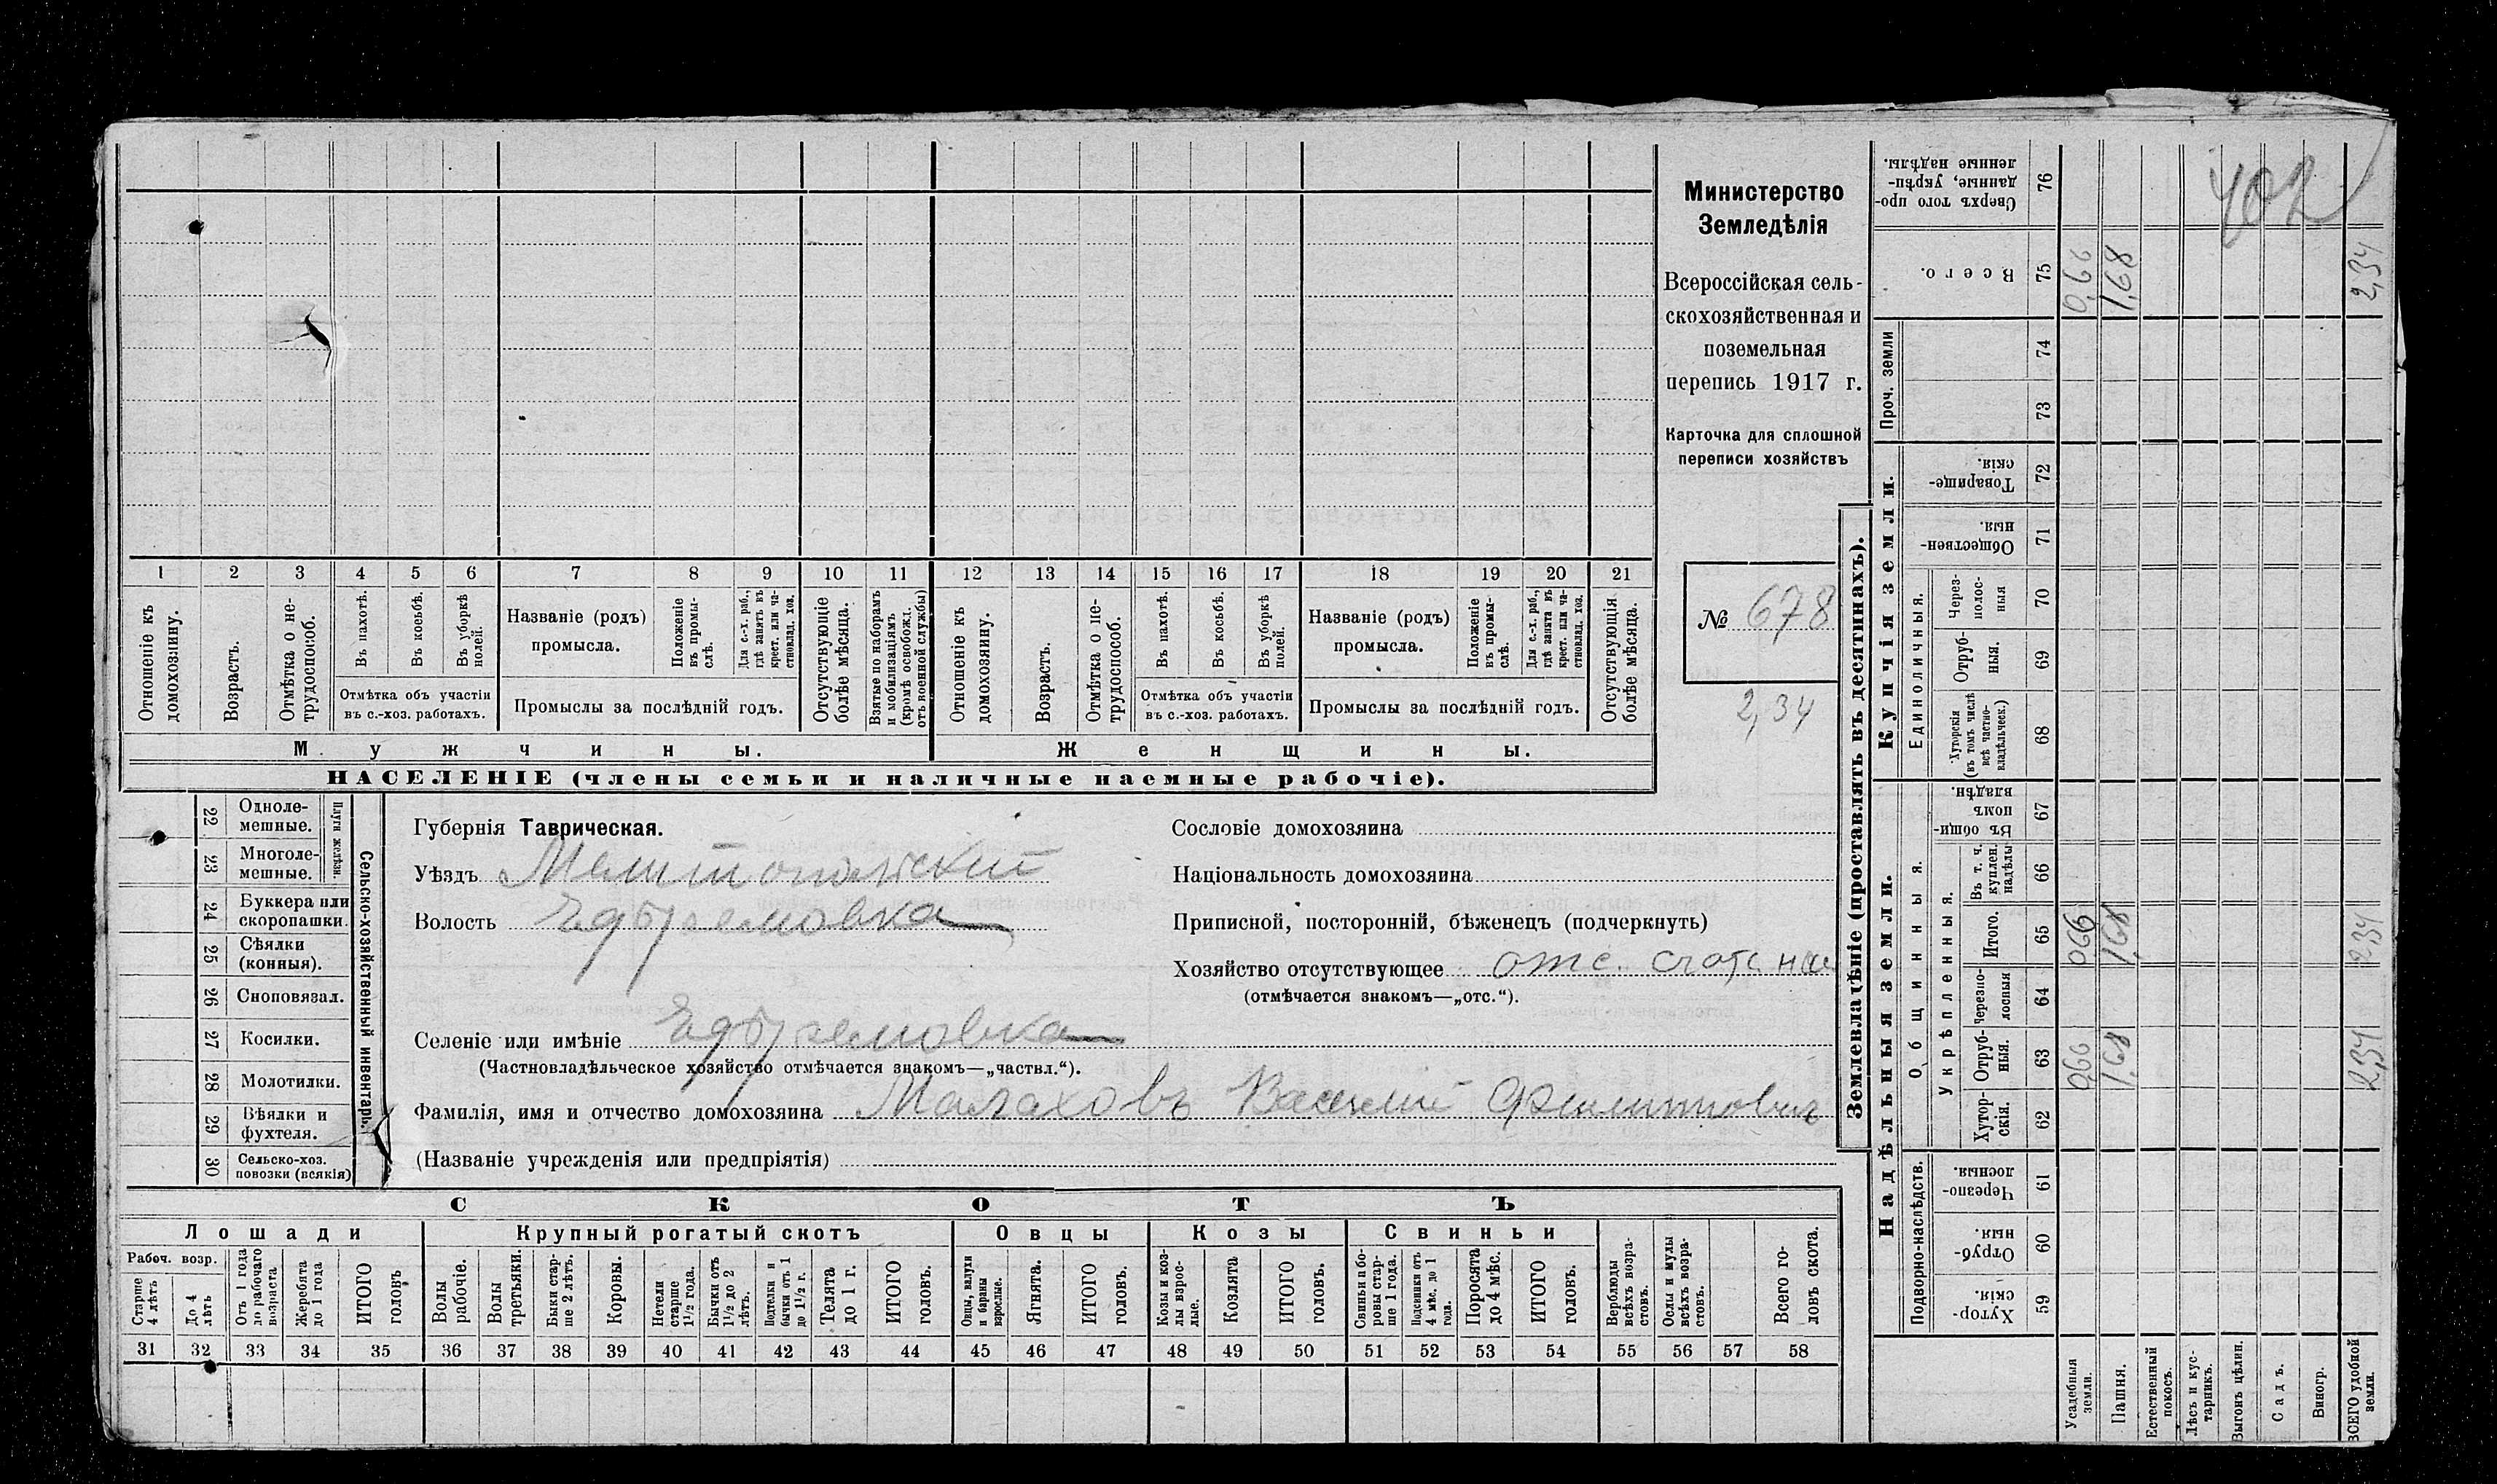 1 2 3 4 5 6 7 8 9 10 11 12 13 14 15 16 17 18 19 20 21
Отношеніе къ домохозяину.
Возрастъ.
Отмѣтка о не-
трудоспособ.
Въ пахотѣ.
Въ косьбѣ.
Въ уборкѣ
полей.
Отмѣтка объ участіи
въ с.-хоз. работахъ.
Названіе (родъ)
промысла.
Положеніе
въ промы-
слѣ.
Для с.-х. раб.,
гдѣ занятъ въ
крест. или ча-
стновлад. хоз.
Промыслы за послѣдній годъ.
Отсутствующіе
болѣе мѣсяца.
Взятые по наборамъ
и мобилизаціямъ
(кромѣ освобожд.
отъ военной службы)
Отношеніе къ
домохозяину.
Возрастъ.
Отмѣтка о не-
трудоспособ.
Въ пахотѣ.
Въ косьбѣ.
Въ уборкѣ
полей.
Отмѣтка объ участіи
въ с.-хоз. работахъ.
Названіе (родъ)
промысла.
Положеніе
въ промы-
слѣ.
Для с.-х. раб.,
гдѣ занята въ
крест. или ча-
стновлад. хоз.
Промыслы за послѣдній годъ.
Отсутствующія
болѣе мѣсяца.
Мужчины.
Женщины.
НАСЕЛЕНІЕ (члены семьи и наличные наемные рабочіе).
Министерство
Земледѣлія
Всероссійская сель-
скохозяйственная и
поземельная
перепись 1917 г.
Карточка для сплошной
переписи хозяйствъ
№ 678
2,34
22 Одноле-
мешные.
23 Многоле-
мешные.
Плуги желѣзн.
24 Буккера или
скоропашки.
25 Сѣялки
(конныя).
26 Сноповязал.
27 Косилки.
28 Молотилки.
29 Вѣялки и
фухтеля.
30 Сельско-хоз.
повозки (всякія)
Сельско-хозяйственный инвентарь.
Губернія Таврическая.
Уѣздъ Мелитопольский
Волость
Селеніе или имѣніе
(Частновладѣльческое хозяйство отмѣчается знакомъ—„частвл.“).
Фамилія, имя и отчество домохозяина Малаховъ Василий Филиппович
(Названіе учрежденія или предпріятія)
Сословіе домохозяина
Національность домохозяина
Приписной, посторонній, бѣженецъ (подчеркнуть)
Хозяйство отсутствующее отс.
(отмѣчается знакомъ—„отс.“).
СКОТЪ
Лошади
Крупный рогатый скотъ
Овцы
Козы
Свиньи
Рабоч. возр.
Старше
4 лѣтъ
До 4
лѣтъ
Отъ 1 года
до рабочаго
возраста
Жеребята
до 1 года
ИТОГО
головъ
Волы
рабочіе.
Волы
третьяки.
Быки стар-
ше 2 лѣтъ.
Коровы.
Нетели
старше
1½ года.
Бычки отъ
1½ до 2
лѣтъ.
Подтелки и
бычки отъ 1
до 1½ г.
Телята
до 1 г.
ИТОГО
головъ.
Овцы, валухи
и бараны
взрослые.
Ягнята.
ИТОГО
головъ.
Козы и коз-
лы взрос-
лые.
Козлята
ИТОГО
головъ.
Свиньи и бо-
ровы стар-
ше 1 года.
Подсвинки отъ
4 мѣс. до 1
года.
Поросята
до 4 мѣс.
ИТОГО
головъ.
Верблюды
всѣхъ возра-
стовъ.
Ослы и мулы
всѣхъ возра-
стовъ.
Всего го-
ловъ скота.
31 32 33 34 35 36 37 38 39 40 41 42 43 44 45 46 47 48 49 50 51 52 53 54 55 56 57 58
Землевладѣніе (проставлять въ десятинахъ).
Надѣльныя земли.
Купчія земли.
Проч. земли
Подворно-наслѣдств.
Общинныя.
Укрѣпленныя.
Единоличныя.
Сверхъ того про-
данные, укрѣп-
ленные надѣлы.
76
402
Всего.
75
0,66
1,68
2,34
74
73
Товарище-
скія.
72
Обществен-
ныя.
71
Через-
полос-
ныя
70
Отруб-
ныя.
69
Хуторскія
(въ томъ числѣ
всѣ частно-
владѣльческ.)
68
Въ общи-
номъ
владѣн.
67
Въ т. ч.
куплен.
надѣлы
66
Итого.
65
0,66
1,68
2,34
Черезпо-
лосныя
64
Отруб-
ныя.
63
0,66
1,68
2,34
Хутор-
скія.
62
Черезпо-
лосныя.
61
Отруб-
ныя.
60
Хутор-
скія.
59
Усадебныя
земли.
Пашня.
Естественный
покосъ.
Лѣсъ и кус-
тарникъ.
Выгонъ цѣлин.
Садъ.
Виногр.
ВСЕГО удобной
земли.